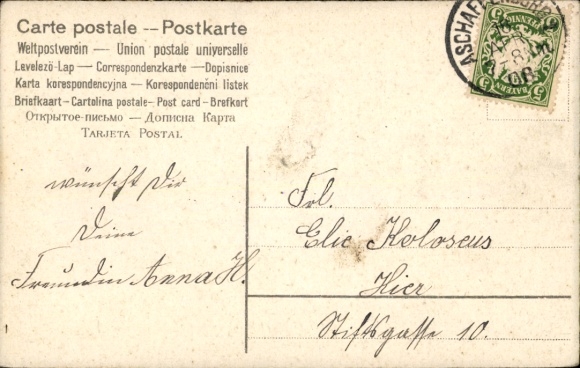 Carte postale -- Postkarte
Weltpostverein — Union postale universelle
Levelező-Lap — Correspondenzkarte — Dopisnice
Karta korespondencyjna — Korespondenční lístek
Briefkaart - Cartolina postale - Post card - Brefkort
Открытое-письмо — Дописна Карта
Tarjeta Postal
wünscht Dir
Deine
Freundin Anna H.
ASCHAFF
BAYERN
5
Frl.
Elic Koloseus
Hier
Stiftsgasse 10.